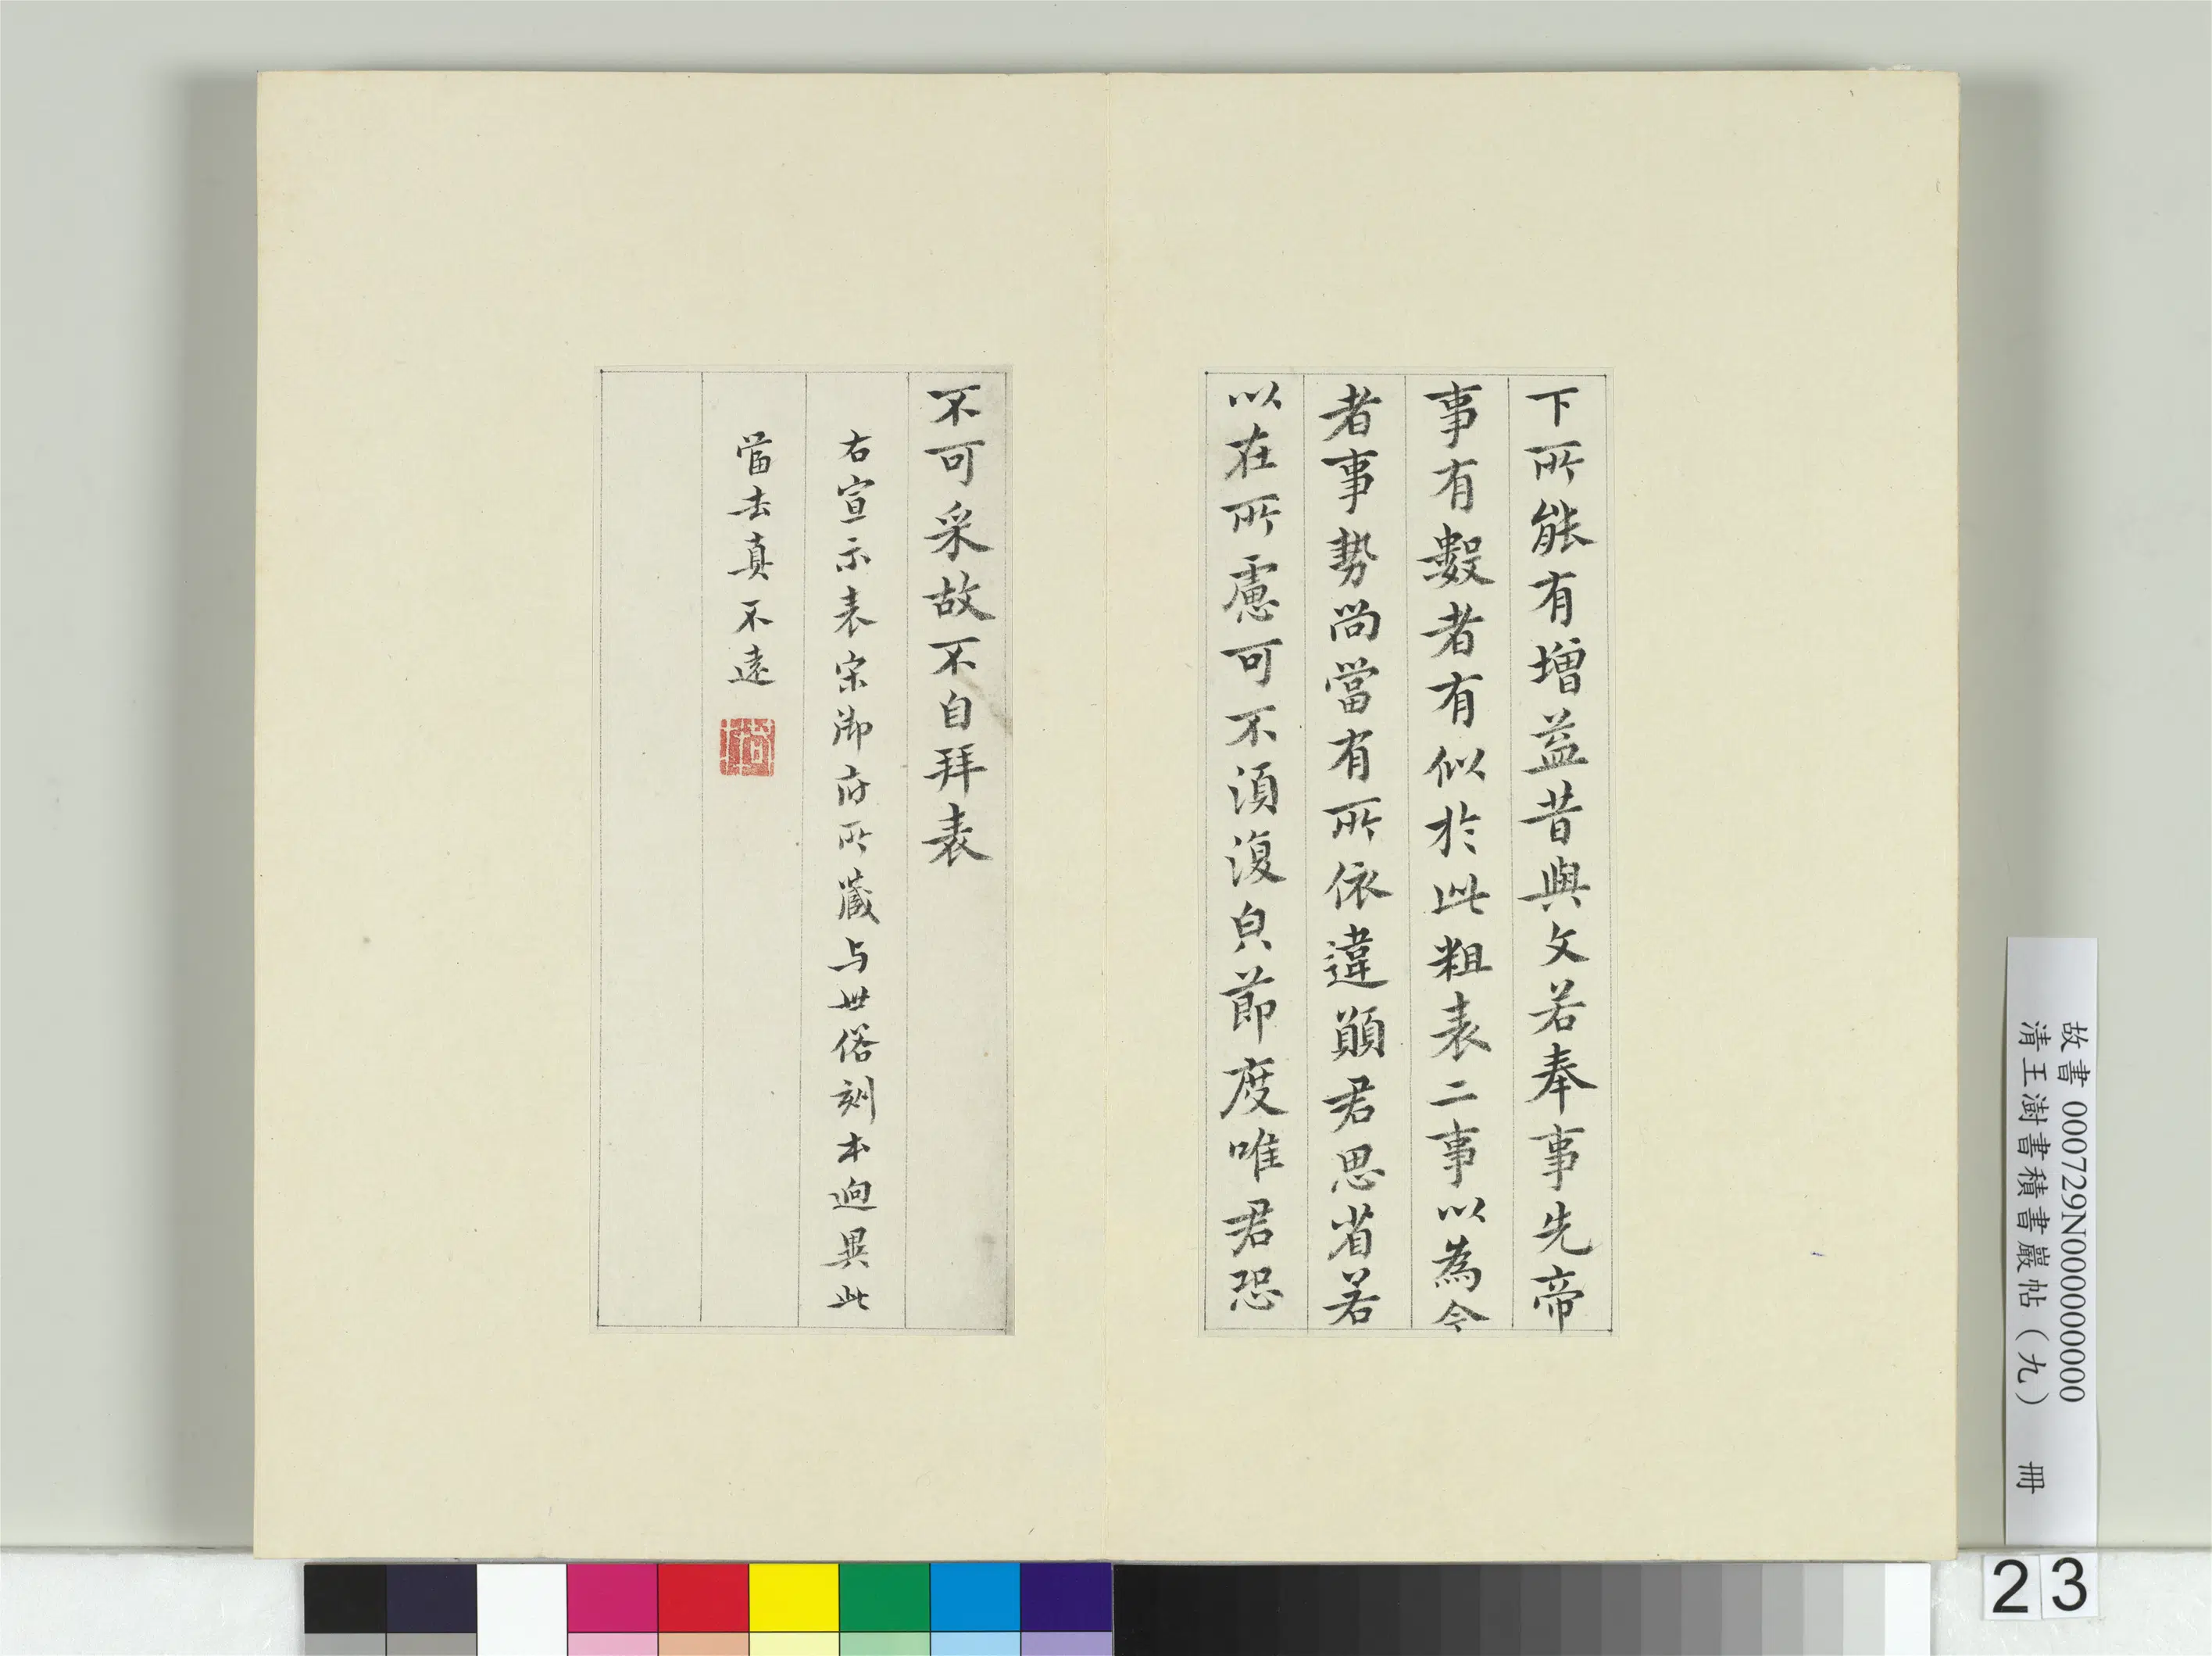 下所能有增益昔與文若奉事先帝
事有數者有似於此粗表二事以為今
者事勢尚當有所依違願君思省若
以在所慮可不須復皃節度唯君恐
不可采故不自拜表
右宣示表宋御府所藏与世俗刻本迥異此
當去真不遠
故書 000729N000000000
清王澍書積書巖帖（九） 冊
23